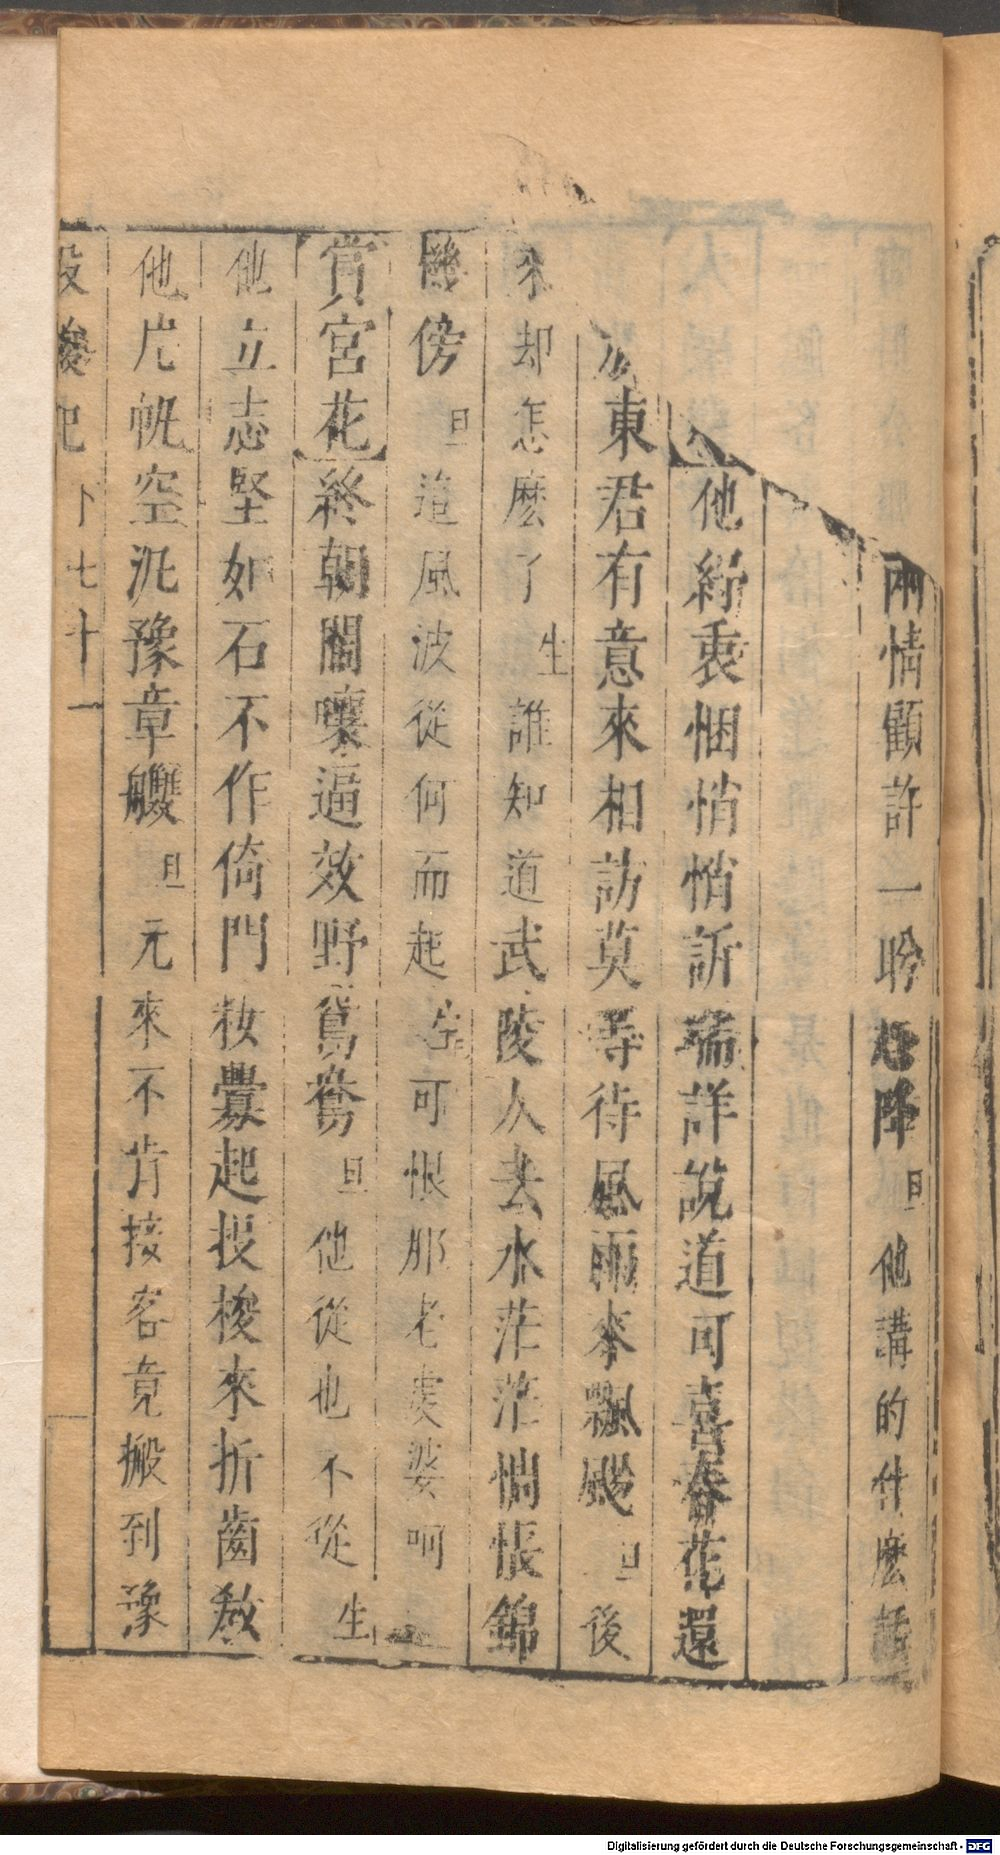 兩情顧許一聆 降旦他講的什麼話
他紛衷悃悄悄訴端詳說道可喜春花還
東君有意來相訪莫等待風雨來飄颺旦後
來却怎麼了生誰知道武陵人去水茫茫茫惆悵錦
傍旦這風波從何而起生可恨那老虔婆呵
賞宮花終朝鬧嚷逼效野鴛鴦旦他從也不從生
他立志堅如石不作倚門粧釁起投梭來折齒敖
他片帆空汎豫章艭旦元來不肯接客竟搬到豫
投梭記 卜七十一
Digitalisierung gefördert durch die Deutsche Forschungsgemeinschaft - DFG